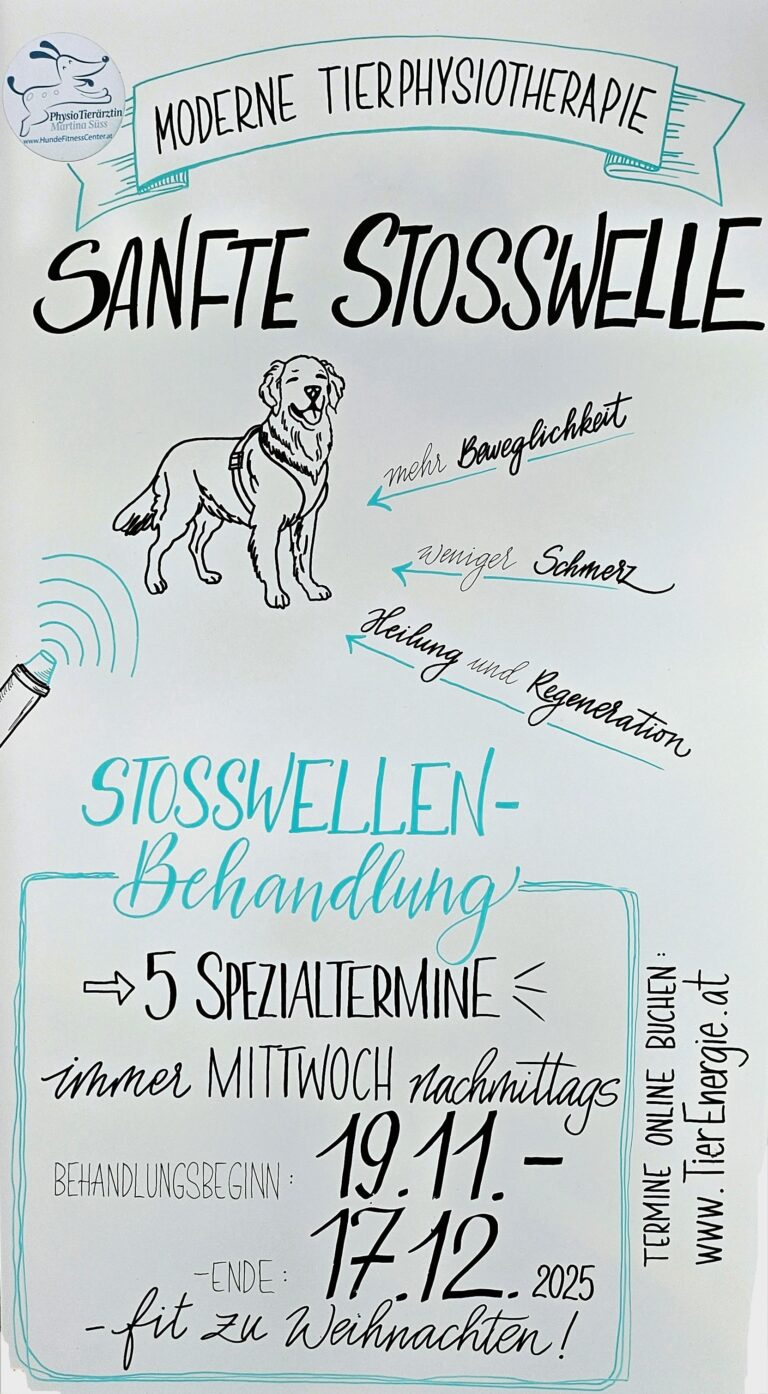 PhysioTierärztin
Martina Süss
www.HundeFitnessCenter.at
MODERNE TIERPHYSIOTHERAPIE
SANFTE STOSSWELLE
mehr Beweglichkeit
weniger Schmerz
Heilung und Regeneration
STOSSWELLEN-
Behandlung
⇨ 5 SPEZIALTERMINE
immer MITTWOCH nachmittags
BEHANDLUNGSBEGINN: 19.11.-
-ENDE: 17.12. 2025
- fit zu Weihnachten!
TERMINE ONLINE BUCHEN:
www.TierEnergie.at